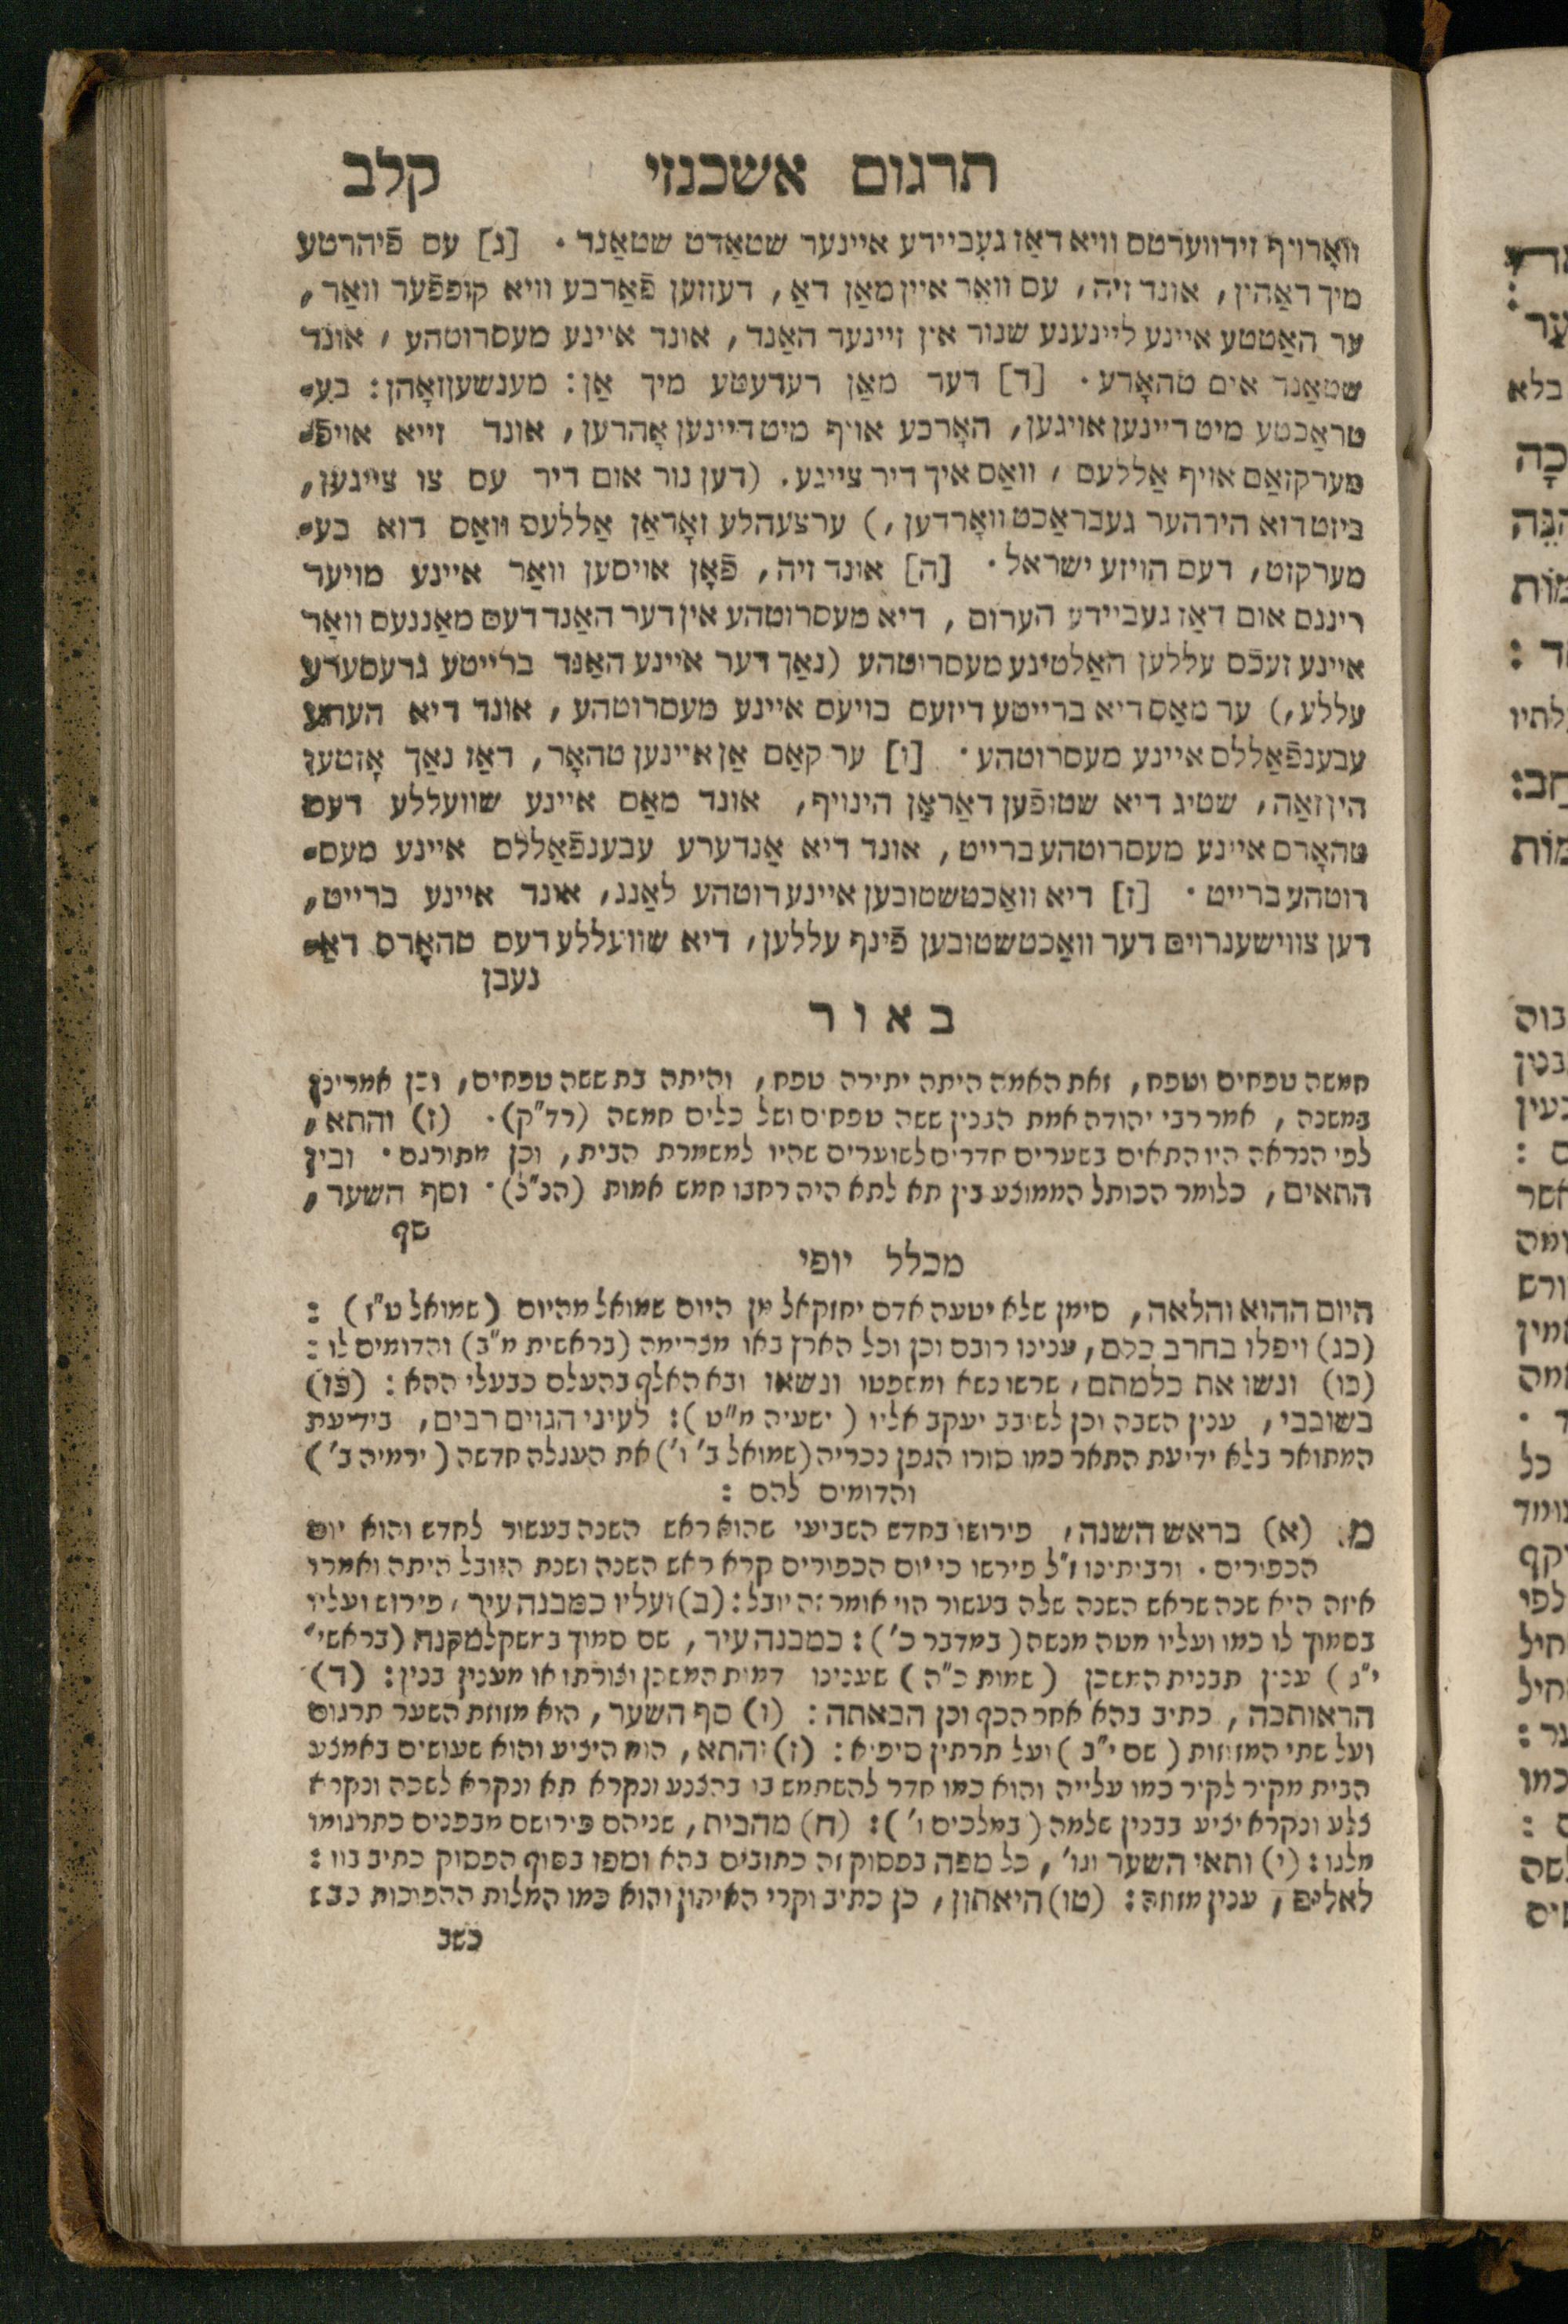 תרגום אשכנזי קלב
וואָרויף זידווערטס וויא דאַז געביידע איינער שטאַדט שטאַנד · [ג] עס פֿיהרטע
מיך דאַהין, אונד זיה, עס וואַר איין מאַן דאַ, דעזזען פֿאַרבע וויא קופפֿער וואַר,
ער האַטטע איינע ליינענע שנור אין זיינער האַנד, אונד איינע מעסרוטהע, אונד
שטאַנד אים טהאָרע · [ד] דער מאַן רעדעטע מיך אַן: מענשענזאָהן: בע-
טראַכטע מיט דיינען אויגען, האָרכע אויף מיט דיינען אָהרען, אונד זייא אויפֿ-
מערקזאַם אויף אַללעס, וואַס איך דיר צייגע. (דען נור אום דיר עס צו צייגען,
ביזט דוא הירהער געבראַכט וואָרדען,) ערצעהלע זאָדאַן אַללעס וואַס דוא בע-
מערקזט, דעם הויזע ישראל · [ה] אונד זיה, פֿאָן אויסען וואַר איינע מויער
רינגס אום דאַז געביידע הערום, דיא מעסרוטהע אין דער האַנד דעס מאַננעס וואַר
איינע זעכס עללען האַלטינע מעסרוטהע (נאַך דער איינע האַנד ברייטע גרעסערע
עללע,) ער מאַס דיא ברייטע דיזעס בויעס איינע מעסרוטהע, אונד דיא העהע
עבענפֿאַללס איינע מעסרוטהע · [ו] ער קאַם אַן איינען טהאָר, דאַז נאַך אָזטען
הין זאַה, שטיג דיא שטופֿען דאַראַן הינויף, אונד מאַס איינע שוועללע דעס
טהאָרס איינע מעסרוטהע ברייט, אונד דיא אַנדערע עבענפֿאַללס איינע מעס-
רוטהע ברייט · [ז] דיא וואַכטשטובען איינע רוטהע לאַנג, אונד איינע ברייט,
דען צווישענרוים דער וואַכטשטובען פֿינף עללען, דיא שוועללע דעס טהאָרס דאַ-
נעבן
באור
חמשה טפחים וטפח, זאת האמה היתה יתירה טפח, והיתה בת ששה טפחים, וכן אמרינן
במשנה, אמר רבי יהודה אמת הבנין ששה טפחים ושל כלים חמשה (רד"ק) · (ז) והתא,
לפי הנראה היו התאים בשערים חדרים לשוערים שהיו למשמרת הבית, וכן מתורגם · ובין
התאים, כלומר הכותל הממוצע בין תא לתא היה רחבו חמש אמות (הנ"ל) · וסף השער,
סף
מכלל יופי
היום ההוא והלאה, סימן שלא יטעה אדם יחזקאל מן היום שמואל מהיום (שמואל ט"ז):
(כג) ויפלו בחרב כלם, ענינו רובם וכן וכל הארץ באו מצרימה (בראשית מ"ב) והדומים לו:
(כו) ונשו את כלמתם, שרשו נשא ומשפטו ונשאו ובא האלף בהעלם כבעלי ההא: (כז)
בשובבי, ענין השבה וכן לשובב יעקב אליו (ישעיה מ"ט): לעיני הגוים רבים, בידיעת
המתואר בלא ידיעת התאר כמו סורו הגפן נכריה (שמואל ב' ו') את העגלה חדשה (ירמיה ב')
והדומים להם:
מ (א) בראש השנה, פירושו בחדש השביעי שהוא ראש השנה בעשור לחדש והוא יום
הכפורים · ורבותינו ז"ל פירשו כי יום הכפורים קרא ראש השנה ושנת היובל היתה ואמרו
איזה היא שנה שראש השנה שלה בעשור הוי אומר זה יובל: (ב) ועליו כמבנה עיר, פירוש ועליו
בסמוך לו כמו ועליו מטה מנשה (במדבר כ'): כמבנה עיר, שם סמוך במשקל מקנה (בראשי'
י"ג) ענין תבנית המשכן (שמות כ"ה) שענינו דמות המשכן וצורתו או מענין בנין: (ד)
הראותכה, כתיב בהא אחר הכף וכן הבאתה: (ו) סף השער, הוא מזוזת השער תרגום
ועל שתי המזוזות (שם י"ב) ועל תרתין סיפיא: (ז) והתא, הוא היציע והוא שעושים באמצע
הבית מקיר לקיר כמו עלייה והוא כמו חדר להשתמש בו בהצנע ונקרא תא ונקרא לשכה ונקרא
צלע ונקרא יציע בבנין שלמה (במלכים ו'): (ח) מהבית, שניהם פירושם מבפנים כתרגומו
מלגו: (י) ותאי השער וגו', כל מפה בפסוק זה כתובים בהא ומפו בסוף הפסוק כתיב בוו:
לאלים, ענין מזוזה: (טו) היאתון, כן כתיב וקרי האיתון והוא כמו המלות ההפוכות כבש
כשב